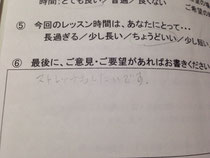 時間：とても良い／普通／良くない
⑤ 今回のレッスン時間は、あなたにとって・・・
長過ぎる／少し長い／ちょうどいい／少し短い
⑥ 最後に、ご意見・ご要望があればお書きください
ストレッチしたいです。